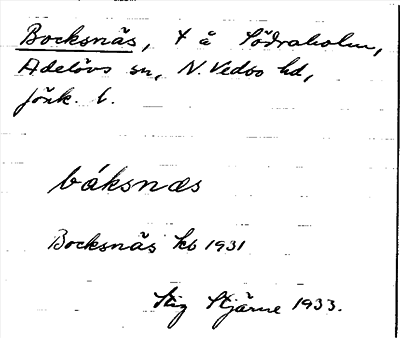 Bocksnäs, t å Södraholm,
Adelövs sn, N. Vedbo hd,
Jönk. l.
båksnæs
Bocksnäs kb 1931
Stig Stjärne 1933.